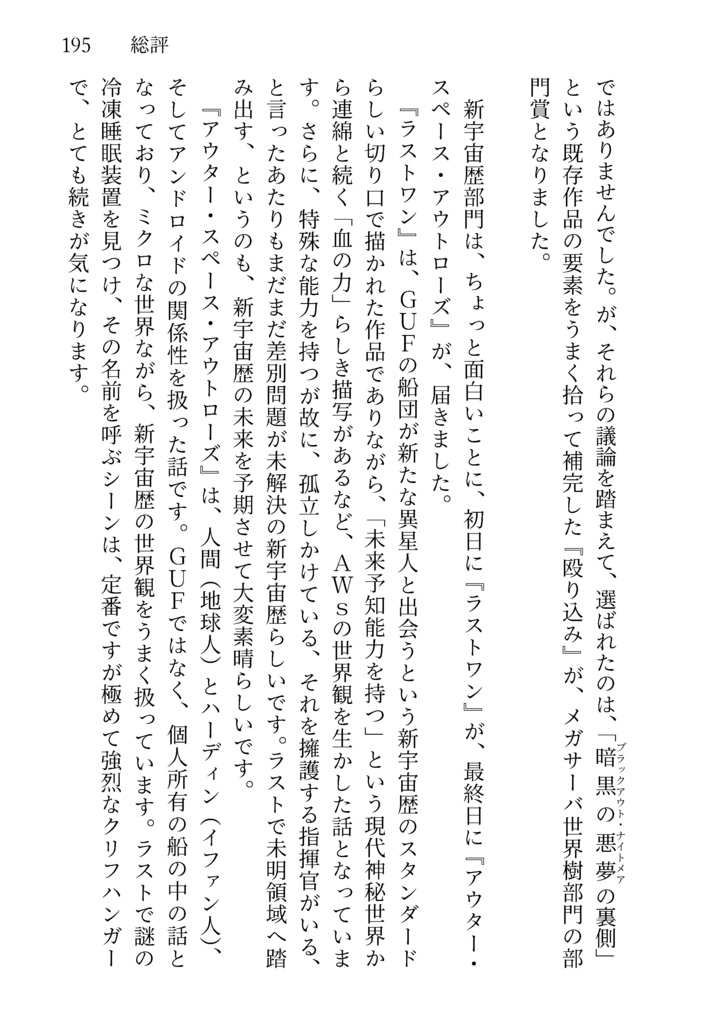 195 総評
ではありませんでした。が、それらの議論を踏まえて、選ばれたのは、「暗黒の悪夢の裏側」
ブラックアウト・ナイトメア
という既存作品の要素をうまく拾って補完した『殴り込み』が、メガサーバ世界樹部門の部
門賞となりました。
新宇宙歴部門は、ちょっと面白いことに、初日に『ラストワン』が、最終日に『アウター・
スペース・アウトローズ』が、届きました。
『ラストワン』は、ＧＵＦの船団が新たな異星人と出会うという新宇宙歴のスタンダード
らしい切り口で描かれた作品でありながら、「未来予知能力を持つ」という現代神秘世界か
ら連綿と続く「血の力」らしき描写があるなど、ＡＷｓの世界観を生かした話となっていま
す。さらに、特殊な能力を持つが故に、孤立しかけている、それを擁護する指揮官がいる、
と言ったあたりもまだまだ差別問題が未解決の新宇宙歴らしいです。ラストで未明領域へ踏
み出す、というのも、新宇宙歴の未来を予期させて大変素晴らしいです。
『アウター・スペース・アウトローズ』は、人間（地球人）とハーディン（イファン人）、
そしてアンドロイドの関係性を扱った話です。ＧＵＦではなく、個人所有の船の中の話と
なっており、ミクロな世界ながら、新宇宙歴の世界観をうまく扱っています。ラストで謎の
冷凍睡眠装置を見つけ、その名前を呼ぶシーンは、定番ですが極めて強烈なクリフハンガー
で、とても続きが気になります。